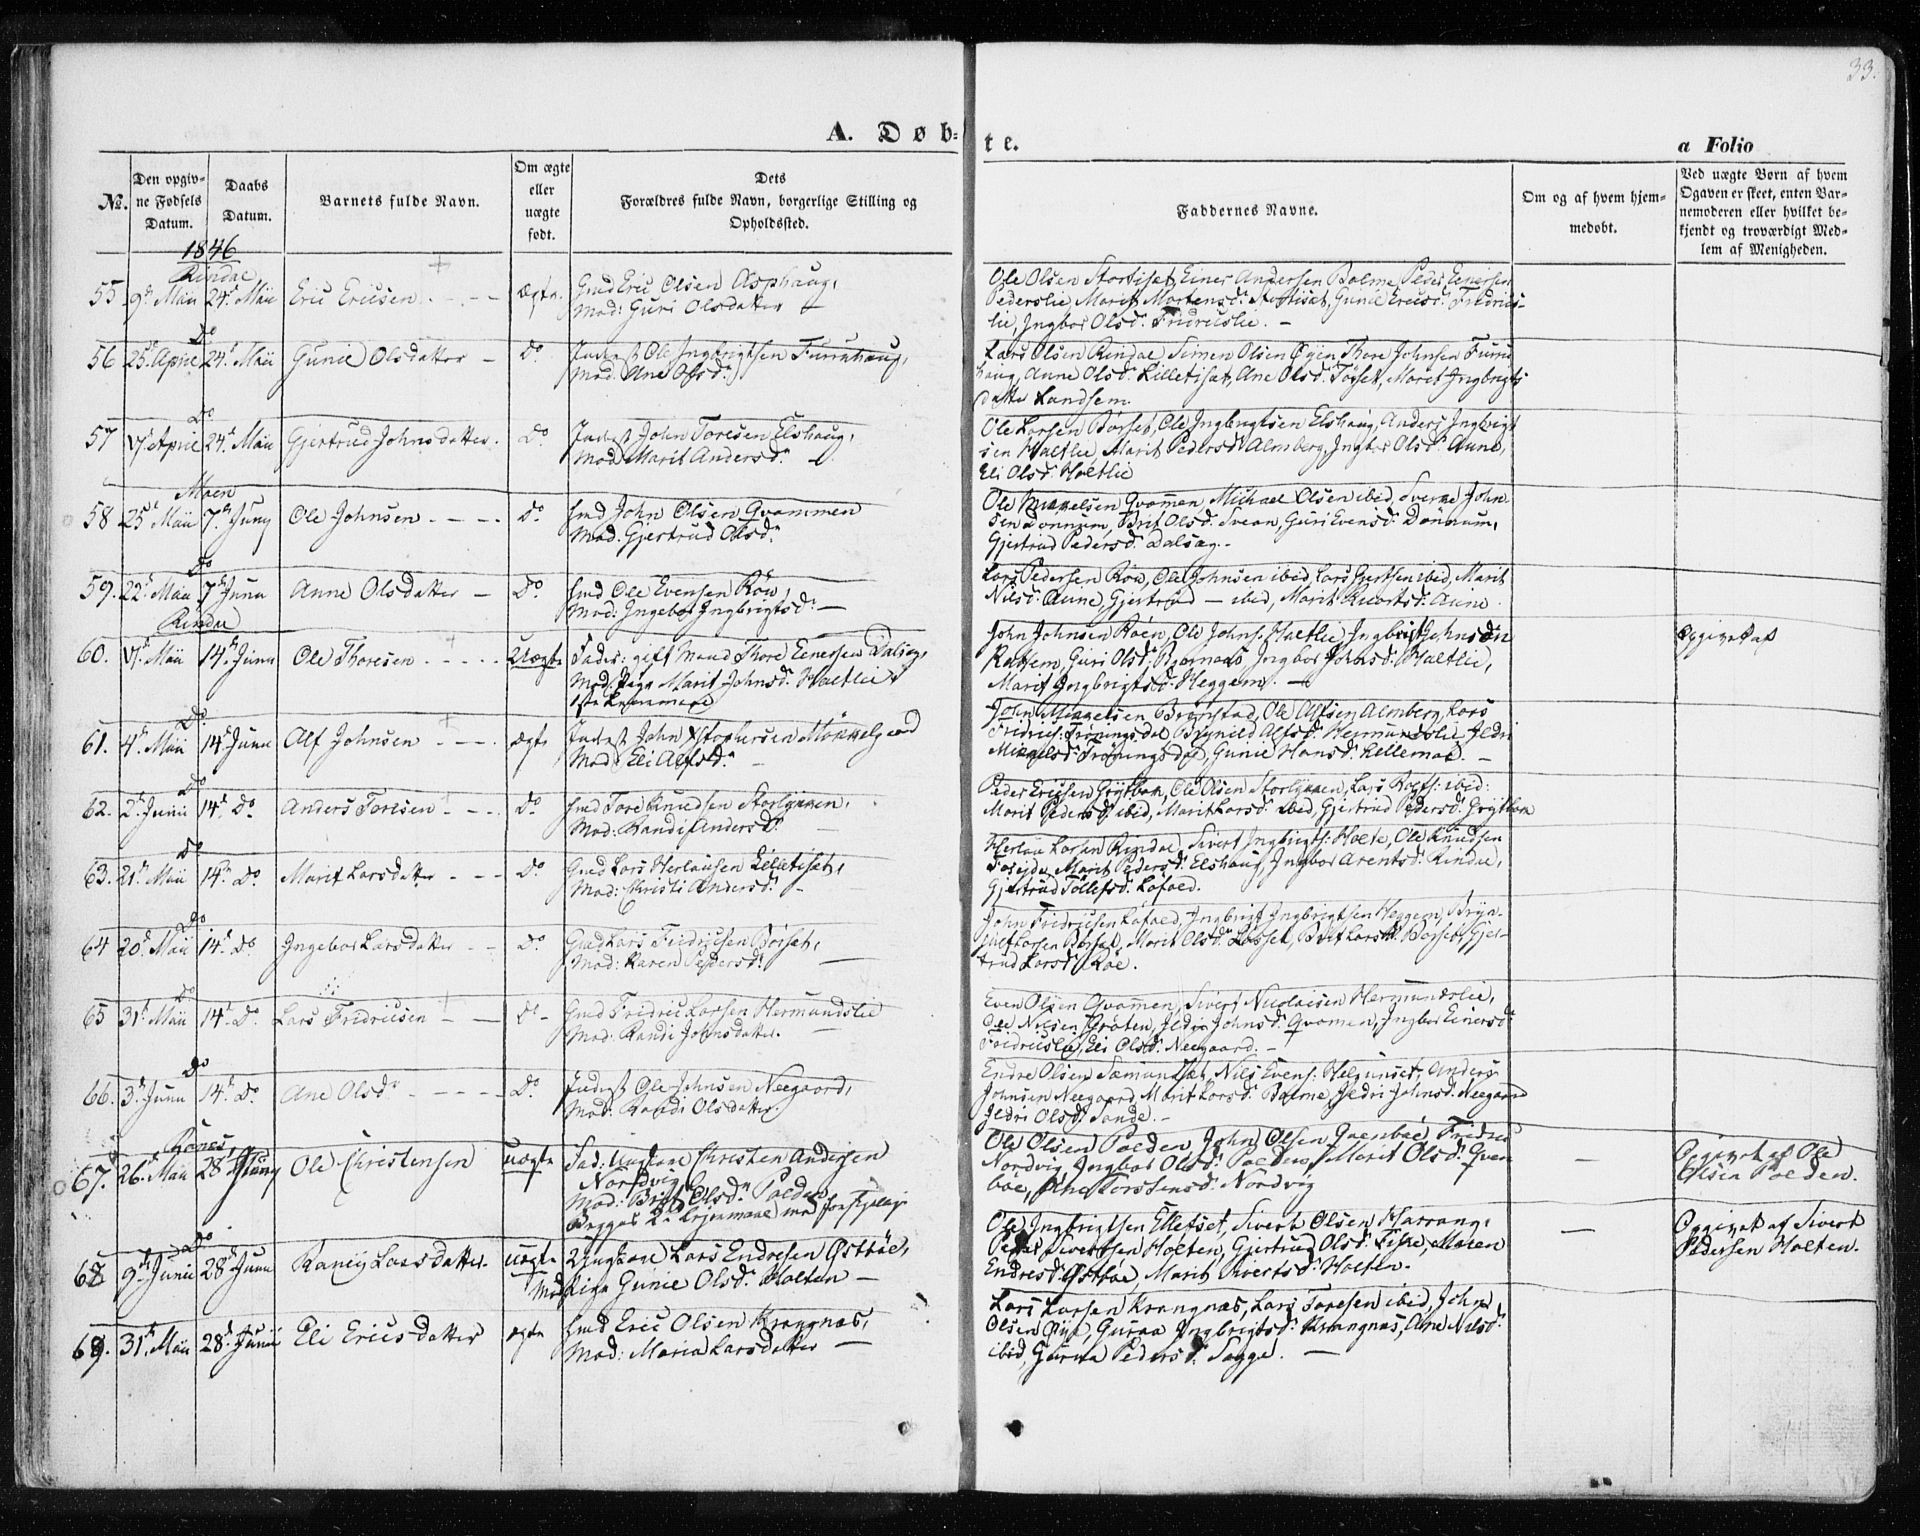 33.
A. Døb-
te.
a Folio
No.
Den opgiv-
ne Fødsels
Datum.
Daabs
Datum.
Barnets fulde Navn.
Om ægte
eller
uægte
født.
Dets
Forældres fulde Navn, borgerlige Stilling og
Opholdssted.
Faddernes Navne.
Om og af hvem hjem-
medøbt.
Ved uægte Børn af hvem
Opgaven er skeet, enten Bar-
nemoderen eller hvilket be-
kjendt og troværdigt Med-
lem af Menigheden.
1846
Rindal
55 9de Maii 24de Maii Eric Ericsen ægte Gmd Eric Olsen Asphaug,
Mod: Guri Olsdatter
Ole Olsen Stortiset, Einer Andersen Bolme, Peder Einersen
Pederslie, Marit Mortensd: Stortiset, Gunil Ericsd: Fridrics-
lie, Ingbor Olsd: Fridricslie. -
Do
56 25de April 24de Maii Gunil Olsdatter - Do Inderst Ole Ingbrigtsen Furruhaug,
Mod: Ane Olsd:
Lars Olsen Rindal, Simen Olsen Øyen, Thore Johnsen Furru
haug, Anne Olsd: Lilletiset, Ane Olsd: Tørset, Marit Ingbrigts
datter Landsem.
Do
57 17de April 24de Maii Gjertrud Johnsdatter. Do Inderst John Toresen Elshaug,
Mod: Marit Andersd:
Ole Larsen Børset, Ole Ingbrigtsen Elshaug, Anders Ingbrigt
sen Haltlie, Marit Pedersd: Almberg, Ingbor Olsd: Aune,
Eli Olsd: Haltlie
Moen
58 25de Maii 7de Juny Ole Johnsen Do Gmd John Olsen Qvammen
Mod: Gjertrud Olsd:
Ole Mikkelsen Qvammen, Michael Olsen ibid, Sverke John
sen Dønnum, Brit Olsd: Svean, Guri Evensd: Dønnum,
Gjertrud Pedersd: Dalsæg. -
Do
59. 22de Maii 7de Junii Anne Olsdatter - Do Gmd Ole Evensen Røv,
Mod: Ingebor Ingbrigtsd: -
Lars Pedersen Røv, Ole Johnsen ibid, Lars Gjertsen ibid, Marit
Nilsd: Aune, Gjertrud - ibid, Marit Sivertsd: Aune
Rindal
60. 17de Maii 14de Junii Ole Thoresen Uægte Fader: gift Mand Thore Einersen Dalsæg,
Mod: Pige Marit Johnsd: Haltlie,
1ste Leiermaal
John Johnsen Røen, Ole Johns. Haltlie, Ingbrigt Johnsen
Rathem, Guri Olsd: Bjørnaas, Ingbor Johnsd: Haltlie,
Marit Ingbrigtsd: Heggem. -
Opgivet af
Do
61. 4de Maii 14de Junii Alf Johnsen ægte Inderst John Xstophersen
Mod: Eli Alfsd: -
John Mikkelsen Ole Alfsen Almberg, Lars
Fridricks: Trøningsdal, Brynild Alfsd: Hermundslie, Ildri
Mikkelsd: Trøningsdal, Gunil Hansd: Lillemoe. -
Do
62. 2de Junii 14de Do Anders Toresen Do Gmd Tore Knudsen Storlykken,
Mod: Randi Andersd:
Peder Ericsen Grytbak, Ole Olsen Storlykken, Lars ibid:
Marit Pedersd: ibid, Marit Larsd: ibid, Gjertrud Pedersd: Grytbak
Do
63. 21de Maii 14de Do. Marit Larsdatter Do Gmd Lars Herlausen Lilletiset,
Mod: Christi Andersd: -
Herlau Larsen Rindal, Sivert Ingbrigts: Holte, Ole Knudsen
Marit Pedersd: Elshaug, Ingbor Arentsd: Rindal,
Gjertrud Tøllefsd: Løfald.
Do
64 20de Maii 14de Do Ingebor Larsdatter - - Do Gmd Lars Fridricsen Børset,
Mod: Karen Pedersd: -
John Fridricsen Løfald, Ingbrigt Ingbrigtsen Heggem, Bryn-
julf Larsen Børset, Marit Olsd: Løsset, Brit Larsd: Børset, Gjer-
trud Larsd: Røe.
Do
65 31de Maii 14de Do. Lars Fridricsen - - Do - Gmd Fridric Larsen Hermundslie
Mod: Randi Johnsdatter.
Even Olsen Qvammen, Sivert Nicolaisen Hermundslie,
Ole Nilsen Grøten, Ildri Johnsd: Qvammen, Ingbor Einersd:
Fridricslie, Eli Olsd: Neegaard. -
Do
66. 3de Junii 14de Do. Ane Olsd: Do Inderst Ole Johnsen Neegaard,
Mod: Randi Olsdatter.
Endre Olsen Sæmundset, Nils Evens: Helgunset, Anders
Johnsen Neegaard, Marit Larsd: Bolme, Ildri Johnsd: Neegaard
Ildri Olsd: Sande. -
Rønes,
67. 26de Maii 28de Juny Ole Christensen uægte Fad: Ungkarl Christen Andersen
Nordvig
Mod: Brit Olsd: Polden
Begges 2det Leiermaal med forskjellige
Ole Olsen Polden, John Olsen Qvenboe, Fridric
Nordvig, Ingbor Olsd: Polden, Marit Olsd: Qven
boe, Ane Torstensd: Nordvig
- Opgivet af Ole
Olsen Polden.
Do
68 9de Junii 28de Junii Ranig Larsdatter. uægte Ungkarl Lars Endresen Østbøe,
Mod: Pige Gunil Olsd: Holten -
Ole Ingbrigtsen Elletset, Sivert Olsen Harrang,
Peder Sivertsen Holten, Gjertrud Olsd: Fiske, Maren
Endresd: Østbøe, Marit Sivertsd: Holten.
- Opgivet af Sivert
Pedersen Holten.
69. 31de Maii 28de Junii Eli Ericsdatter ægte Gmd Eric Olsen Krangnæs,
Mod: Maria Larsdatter -
Lars Larsen Krangnæs, Lars Toresen ibid, John
Olsen Øye, Guraa Ingbrigtsd: Krangnæs, Ane Nilsd:
ibid, Guraa Pedersd: Sogge. -